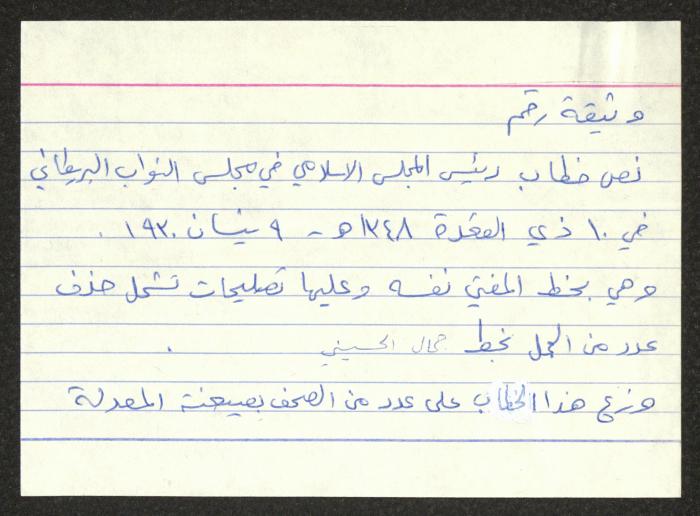 وثيقة رقم
نص خطاب رئيس المجلس الاسلامي في مجلس النواب البريطاني
في ١٠ ذي القعدة ١٣٤٨ هـ - ٩ نيسان ١٩٣٠ .
وهي بخط المفتي نفسه وعليها تصليحات تشمل حذف
عدد من الجمل بخط جمال الحسيني .
وزع هذا الخطاب على عدد من الصحف بصيغته المعدلة